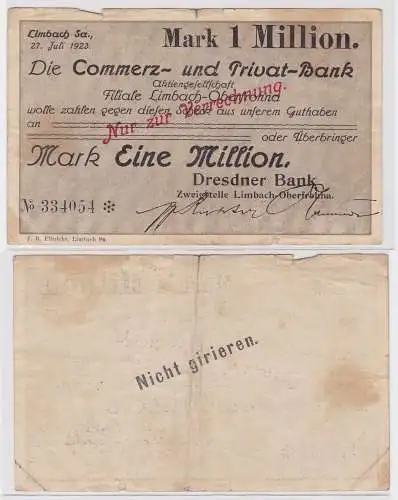 Limbach Sa.,
27. Juli 1923.
Mark 1 Million.
Die Commerz- und Privat-Bank
Aktiengesellschaft
Filiale Limbach-Oberfrohna
wolle zahlen gegen diesen Scheck aus unserem Guthaben
an
oder Überbringer
Nur zur Verrechnung.
Mark Eine Million.
Dresdner Bank
Zweigstelle Limbach-Oberfrohna.
No 334054 *
Limbach Sa.
Nicht girieren.